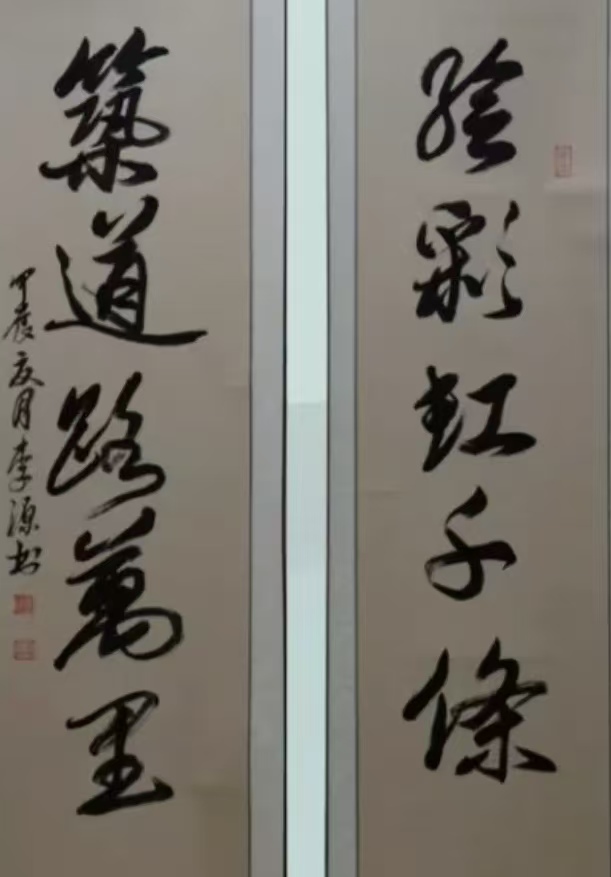 绘彩虹千條
築道路萬里
甲辰夏月李源书